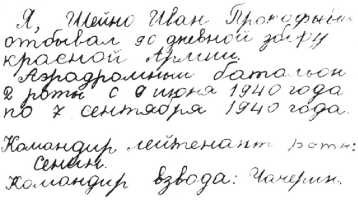 Я, Шейно Иван Прокофьич
отбывал 90 дневной збору
красной Армии.
Аэродромный баталон
2 роты с 9 июня 1940 года
по 7 сентября 1940 года.
Командир лейтенант роты:
Сенин.
Командир взвода: Чачерин.